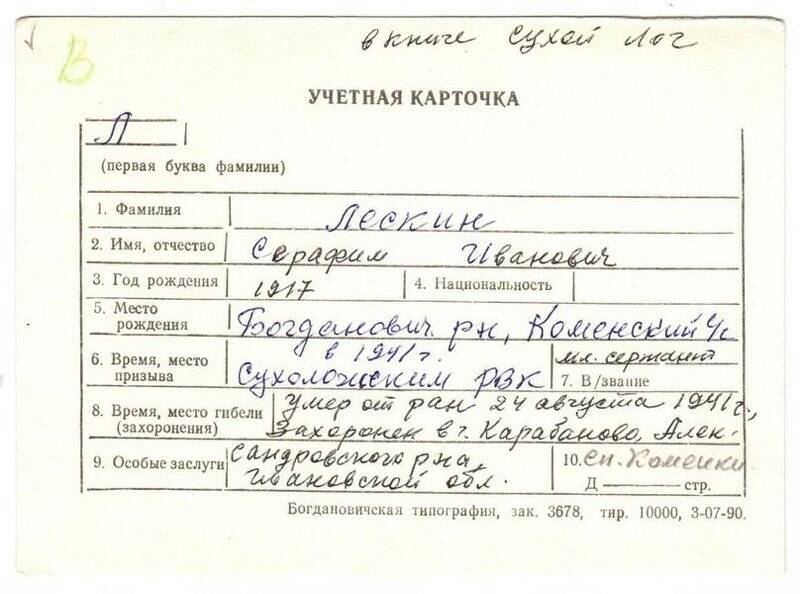 в книге Сухой Лог
В
УЧЕТНАЯ КАРТОЧКА
Л
(первая буква фамилии)
1. Фамилия Лескин
2. Имя, отчество Серафим Иванович
3. Год рождения 1917 4. Национальность
5. Место рождения Богданович. рн, Коменский с/с
6. Время, место призыва в 1941 г. Сухоложским РВК
мл. сержант
7. В/звание
8. Время, место гибели (захоронения) умер от ран 24 августа 1941 г.,
Захоронен в г. Карабаново, Алек-
9. Особые заслуги сандровского р-на,
Ивановской обл.
10. сп. Коменки
Д — стр.
Богдановичская типография, зак. 3678, тир. 10000, 3-07-90.